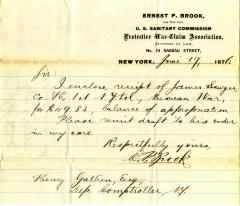 ERNEST P. BROOK,
U. S. SANITARY COMMISSION
Protective War-Claim Association,
Attorney at Law,
No. 111 NASSAU STREET,
NEW YORK, June 17, 1876
Sir:
I enclose receipt of James Sawyer,
Co. H, 1st N.Y. Vol., Mexican War,
for $49.83, balance of appropriation
Please remit draft to his order
in my care
Respectfully yours,
E. P. Brook
Henry Gallien, Esq.,
Dep. Comptroller, N.Y.